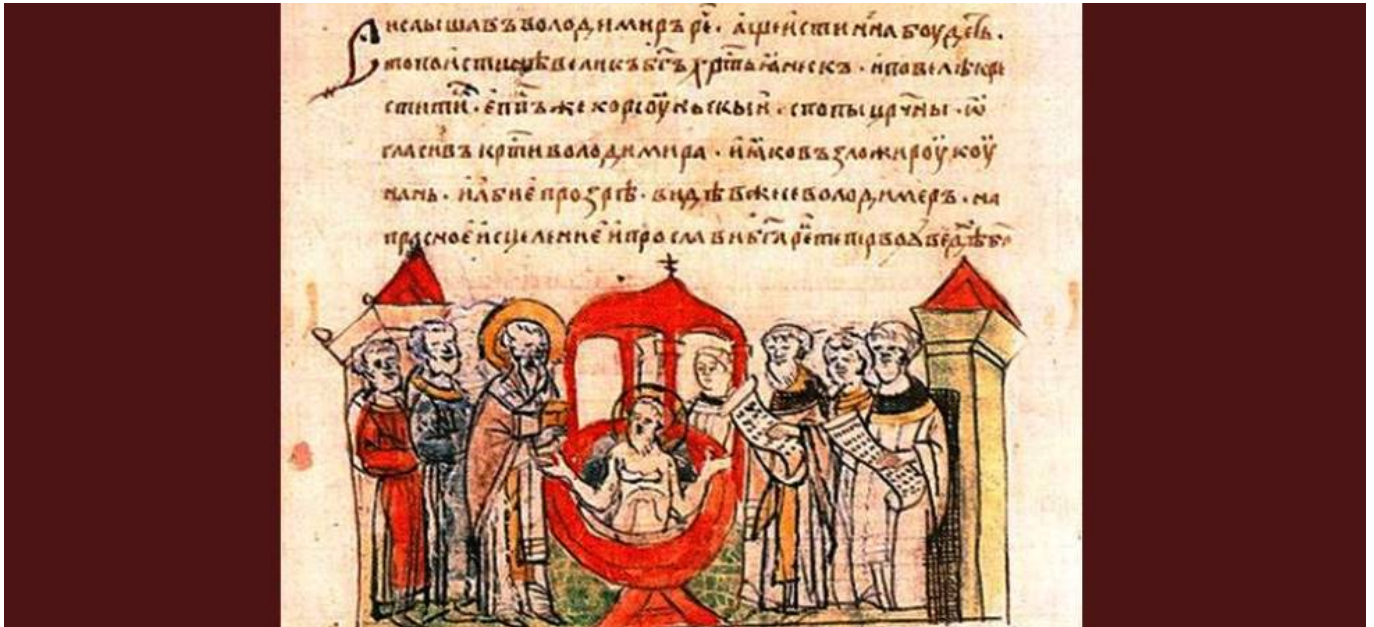 Аислышавъ володимиръ ре҃ · аще истинна боудеть ·
то поистинѣ великъ бг҃ъ хрт҃ьꙗнескъ · и повелѣ кре
стити · еп҃пъ же корсоуньскыи · с попы цр҃чны · ѿ
гласивъ крт҃и володимира · и ꙗко възложи роукоу
нань · и абие прозрѣ · видѣвже се володимеръ · на
прасное исцеление и прослави б҃га ре҃